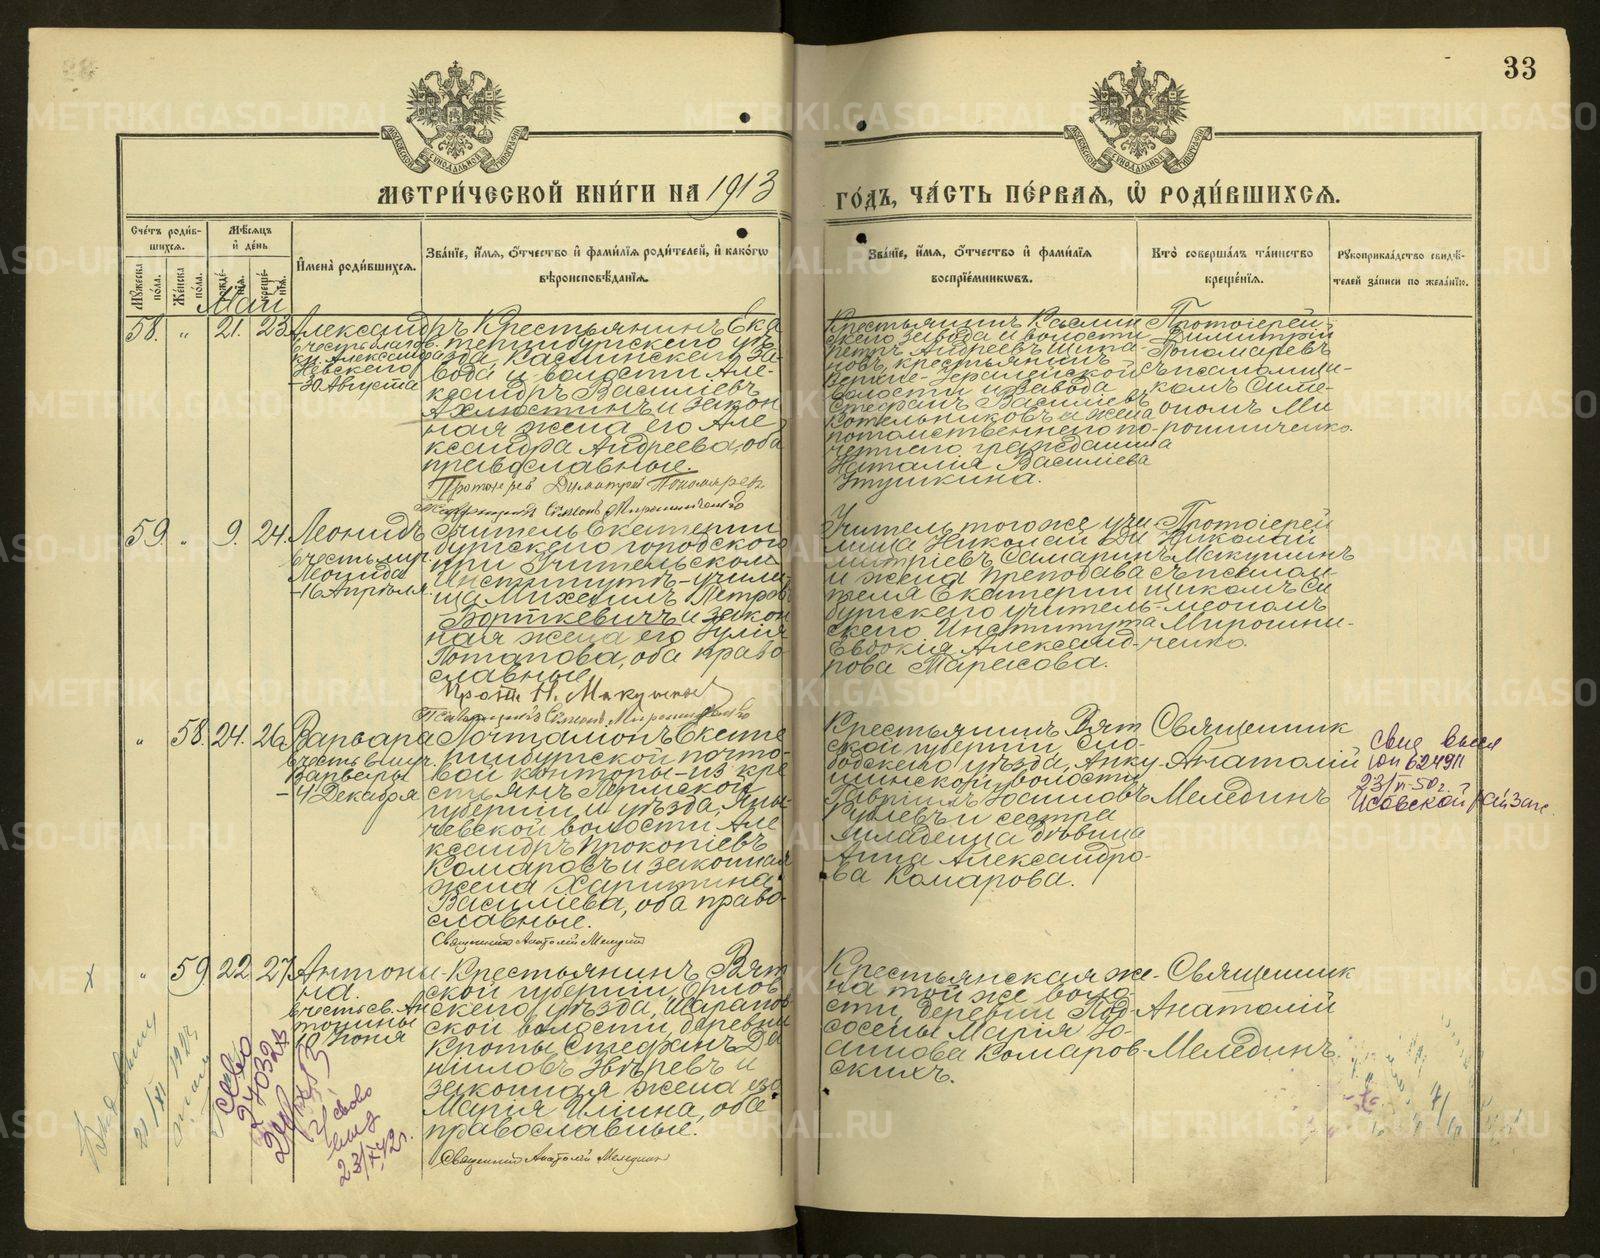 33
МОСКОВСКОЙ СѴНОДАЛЬНОЙ ТИПОГРАФІИ
МОСКОВСКОЙ СѴНОДАЛЬНОЙ ТИПОГРАФІИ
МЕТРИ́ЧЕСКОЙ КНИ́ГИ НА 1913
ГО́ДЪ, ЧА́СТЬ ПЕ́РВАЯ, Ѡ РОДИ́ВШИХСЯ.
Сче́тъ роди́в-
шихся.
Му́жеска по́ла.
Же́нска по́ла.
Мѣ́сяцъ
и҆ де́нь
рожде́-
нія.
креще́-
нія.
И҆мена̀ роди́вшихся.
Зва́нїе, и҆́мя, ѻ҆́тчество и҆ фами́лїя роди́телей, и҆ како́гѡ
вѣроисповѣ́данїя.
Зва́нїе, и҆́мя, ѻ҆́тчество и҆ фами́лїя
воспрїе́мникѡвъ.
Кто̀ соверша́лъ та́инство
креще́нїя.
Рꙋкоприкла́дство свидѣ́-
телей за́писи по жела́нїю.
Май
58. " 21. 23.
Александръ
въ честь благов.
кн. Александра
Невскаго
- 30 Августа
Крестьянинъ Ека
теринбургскаго уѣ
зда, Каслинскаго за-
вода и волости Але-
ксандръ Василіевъ
Ахлюстинъ и закон
ная жена его Але
ксандра Андреева, оба
православные.
Протоіерей Димитрій Пономаревъ
Псаломщикъ Симеонъ Мирошниченко
Крестьянинъ Каслин
скаго завода и волости
Петръ Андреевъ Шипа-
новъ, крестьянинъ
Верхне-Уфалейской
волости и завода
Стефанъ Василіевъ
Котельниковъ и жена
потомственнаго по-
четнаго гражданина
Наталія Василіева
Утушкина.
Протоіерей
Димитрій
Пономаревъ
съ псаломщи-
комъ Симе-
ономъ Ми
рошниченко.
59. " 9. 24.
Леонидъ
въ честь муч.
Леонида
- 16 Апрѣля.
Учитель Екатерин
бургскаго городского
при Учительскомъ
Институтѣ - учили-
ща Михаилъ Петровъ
Борткевичъ и закон
ная жена его Юлія
Потапова, оба право
славные.
Прот. Н. Макушинъ
Псаломщикъ Симеонъ Мирошниченко
Учитель того же учи-
лища Николай Ди
митріевъ Самаринъ
и жена преподава
теля Екатерин
бургскаго учитель-
скаго Института
Евдокія Александ-
рова Тарасова.
Протоіерей
Николай
Макушинъ
съ псалом-
щикомъ Си
меономъ
Мирошни-
ченко.
" 58. 24. 26.
Варвара
въ честь вмуч.
Варвары
- 4 Декабря
Почталіонъ Екате
ринбургской почто-
вой конторы - из кре
стьянъ Пермской
губерніи и уѣзда, Яны-
чевской волости Але
ксандръ Прокопіевъ
Комаровъ и законная
жена Харитина
Василіева, оба право-
славные.
Священникъ Анатолій Мелединъ
Крестьянинъ Вят
ской губерніи, Сло-
бодскаго уѣзда, Анку-
шинской волости
Гавріилъ Іоанновъ
Рулевъ и сестра
младенца дѣвица
Анна Александро-
ва Комарова.
Священникъ
Анатолій
Мелединъ
23/VI-50г.
Исовской райзагс
" 59. 22. 27.
Антони-
на.
въ честь св. Ан
тонины
10 Іюня
Крестьянинъ Вят
ской губерніи, Орлов
скаго уѣзда, Шарапов
ской волости, деревни
Кроты Стефанъ Да
ниловъ Звѣревъ и
законная жена его
Марія Иліина, оба
православные.
Священникъ Анатолій Мелединъ
Крестьянская же-
на той же воло-
сти, деревни Под-
сосены Марія Іо-
аннова Комаров-
скихъ.
Священникъ
Анатолій
Мелединъ.
х